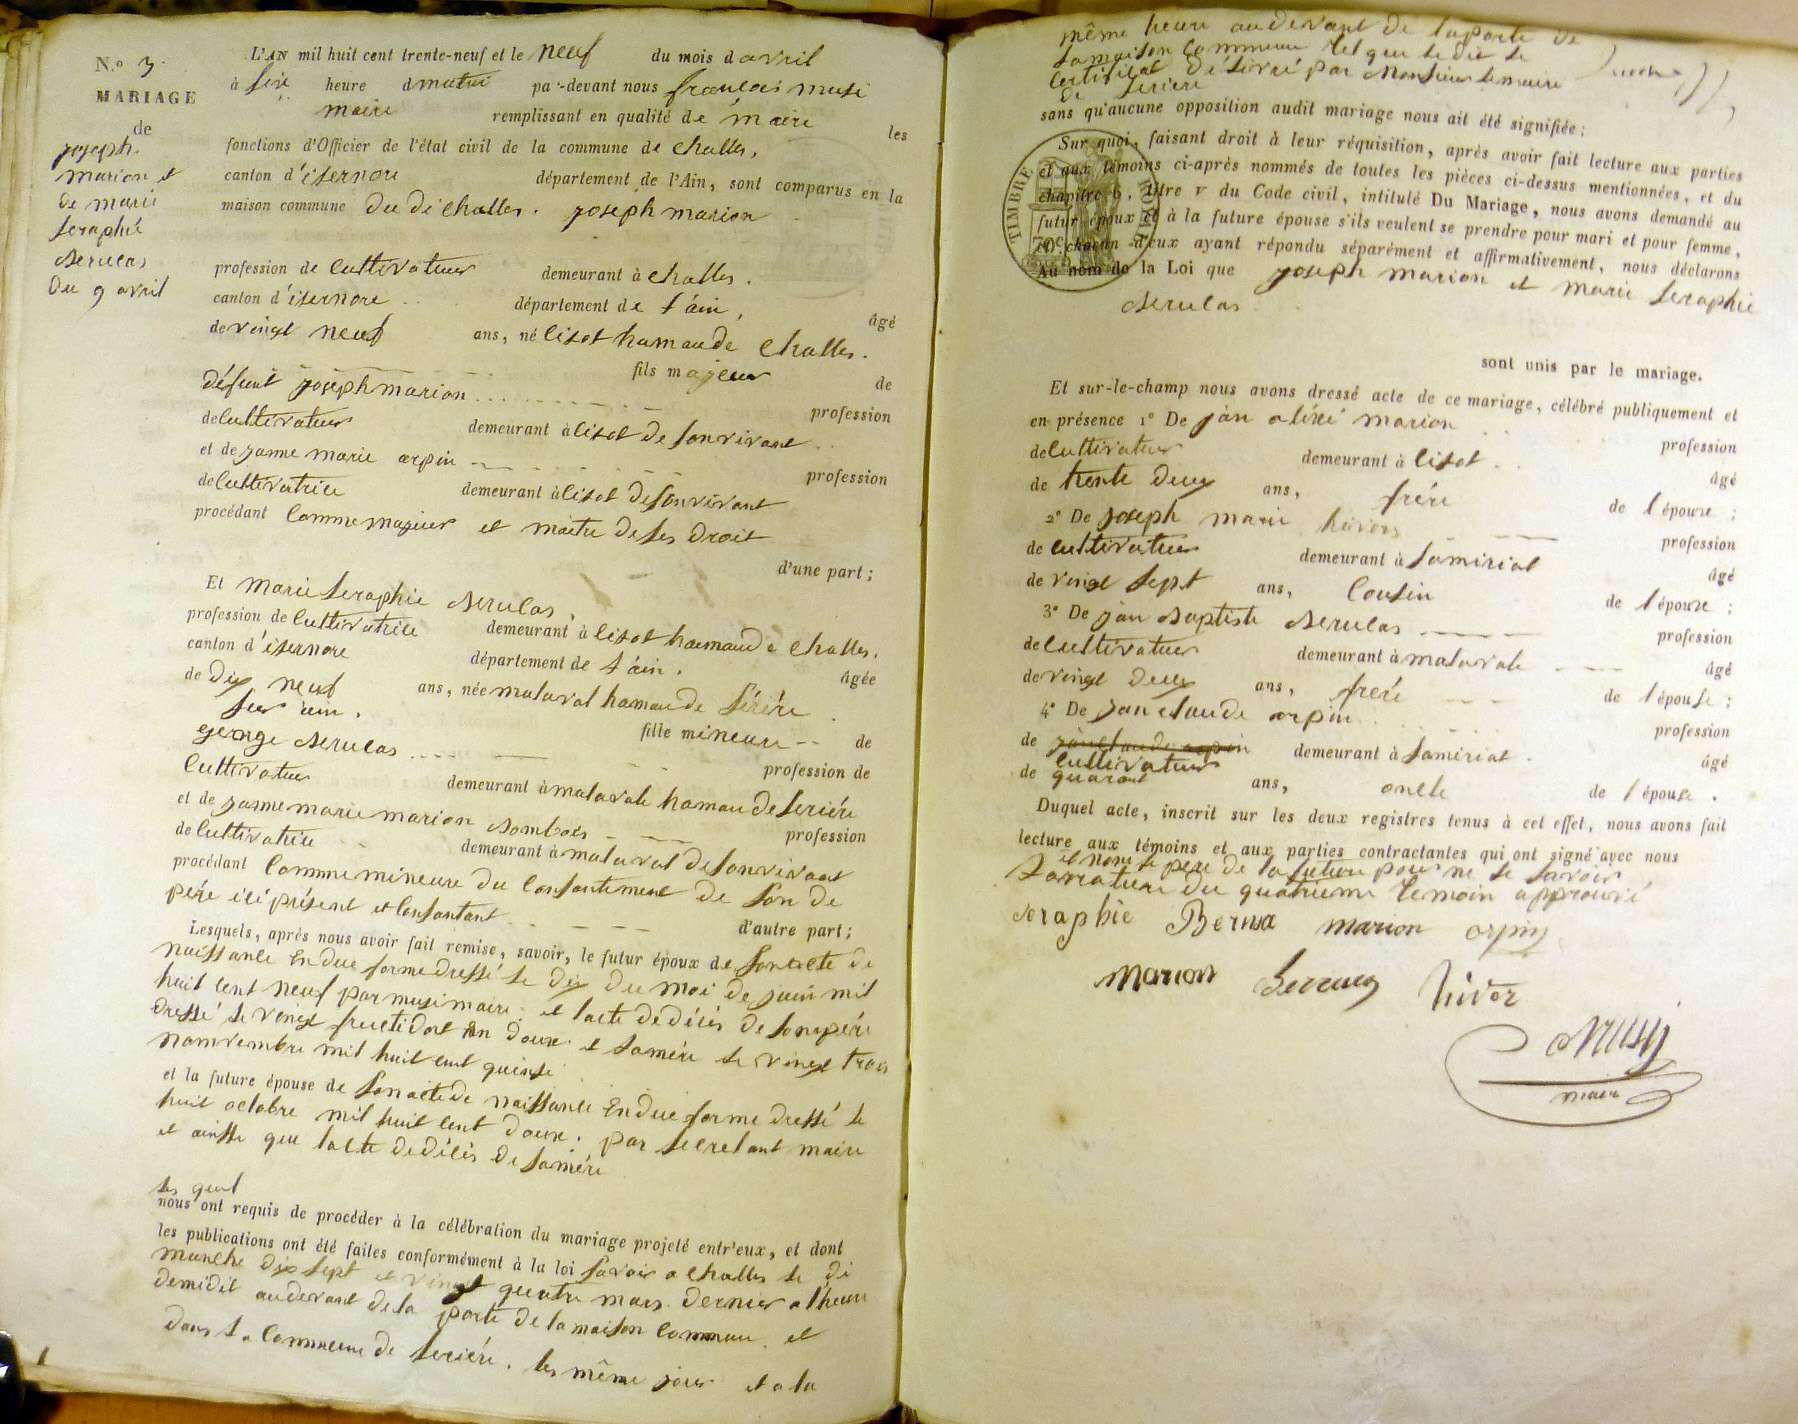 N.º 3
MARIAGE
de
joseph
marion et
de marie
seraphie
Berulas
du 9 avril
L'AN mil huit cent trente-neuf et le neuf du mois d avril
à six heure d matin par-devant nous françois musi
maire remplissant en qualité de maire les
fonctions d'Officier de l'état civil de la commune de challes,
canton d'isernore département de l'Ain, sont comparus en la
maison commune du di challes. joseph marion
profession de cultivateur demeurant à challes.
canton d'isernore département de l'ain, âgé
de vingt neuf ans, né lisot hamau de challes.
fils majeur de
défunt joseph marion profession
de cultivateur demeurant à lisot de son vivant
et de janne marie arpin profession
de cultivatrice demeurant à lisot de son vivant
procédant comme majeur et maitre de ses droit
d'une part ;
Et marie seraphie Berulas,
profession de cultivatrice demeurant à lisot hamaud e challes.
canton d'isernore département de l'ain. âgée
de dix neuf ans, née malaval hamau de sérière
sur ain.
fille mineure de
george Berulas profession de
cultivateur demeurant à malavale hamau de serière
et de janne marie marion Bombois profession
de cultivatrice demeurant à malaval de son vivant
procédant comme mineure du consantement de son de
père ici présent et consantant d'autre part ;
Lesquels, après nous avoir fait remise, savoir, le futur époux de son acte de
naissance en due forme dressé le dix du moi de juin mil
huit cent neuf par musi maire. et lacte de décès de son père
dressé le vingt fructidor an douze. et sa mère le vingt trois
nomvembre mil huit cent quinze
et la future épouse de son acte de naissance en due forme dressé le
huit octobre mil huit cent douze. par secretant maire
et ainsse que lacte de décès de sa mère
les quel
nous ont requis de procéder à la célébration du mariage projeté entr'eux, et dont
les publications ont été faites conformément à la loi savoir a challes le di
manche dix sept et vingt quatre mars dernier a l'heure
de midit au devant de la porte de la maison commune. et
dans la commune de serière. les même jour et a la
même heure au devant de la porte de
la maison commune tel que le dit le
certificat délivré par Monsieur le maire
de serière
sans qu'aucune opposition audit mariage nous ait été signifiée ;
TIMBRE ROYAL
70c
Sur quoi, faisant droit à leur réquisition, après avoir fait lecture aux parties
et aux témoins ci-après nommés de toutes les pièces ci-dessus mentionnées, et du
chapitre 6, titre v du Code civil, intitulé Du Mariage, nous avons demandé au
futur époux et à la future épouse s'ils veulent se prendre pour mari et pour femme,
et chacun d'eux ayant répondu séparément et affirmativement, nous déclarons
Au nom de la Loi que joseph marion et marie seraphie
Berulas
sont unis par le mariage.
Et sur-le-champ nous avons dressé acte de ce mariage, célébré publiquement et
en présence 1º De jan alexi marion profession
de cultivateur demeurant à lisot. âgé
de trente deux ans, frére de l'épouxe ;
2º De joseph marie hivers profession
de cultivateur demeurant à samiriat âgé
de vingt sept ans, cousin de l'épouxe ;
3º De jan Baptiste Berulas profession
de cultivateur demeurant à malavale âgé
de vingt deux ans, frére de l'épouse ;
4º De jan claude arpin profession
de jan claude arpin demeurant à samiriat. âgé
cultivateur
de quarant ans, oncle de l'épouse.
Duquel acte, inscrit sur les deux registres tenus à cet effet, nous avons fait
lecture aux témoins et aux parties contractantes qui ont signé avec nous
et nom le père de la future pour ne le savoir
La rature du quatrieme temoin approuvé
seraphie Berula marion arpin
marion Berulas hiver
Musy
maire